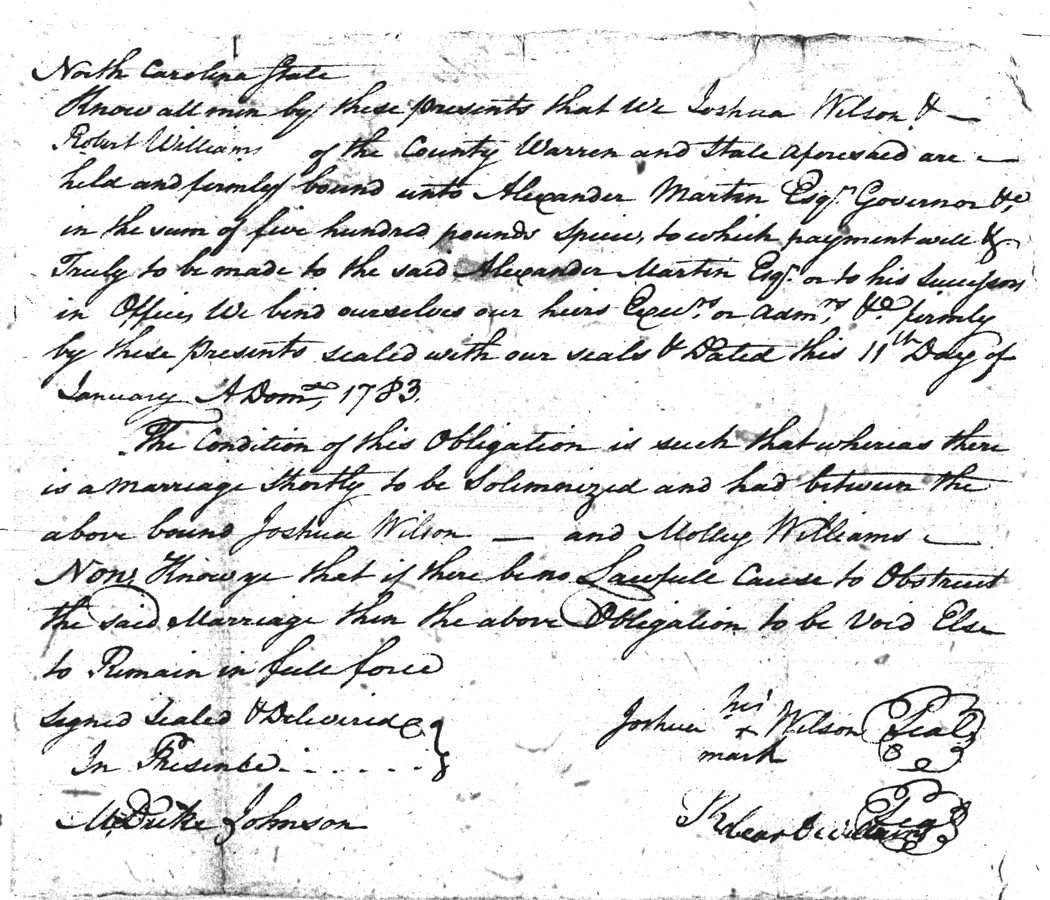 North Carolina State
Know all men by these presents that We Joshua Wilson & —
Robert Williams of the County Warren and State aforesaid are —
held and firmly bound unto Alexander Martin Esqr. Governor &c,
in the sum of five hundred pounds Specie, to which payment well &
Truly to be made to the said Alexander Martin Esqr. or to his Successors
in Office, We bind ourselves our heirs Execrs. or admrs, &c. firmly
by these presents sealed with our seals & Dated this 11th Day of
January A Dom, 1783.
The Condition of this Obligation is such that whereas there
is a Marriage Shortly to be Solemnized and had between the
above bound Joshua Wilson — and Molley Williams —
Now, Know ye that if there be no Lawfull Cause to Obstruct
the said Marriage then the above Obligation to be Void Else
to Remain in full force
Signed Sealed & Delivered }
In Presence . . . . . .
his
Joshua + Wilson (Seal)
mark
M. Duke Johnson
Williams (Seal)